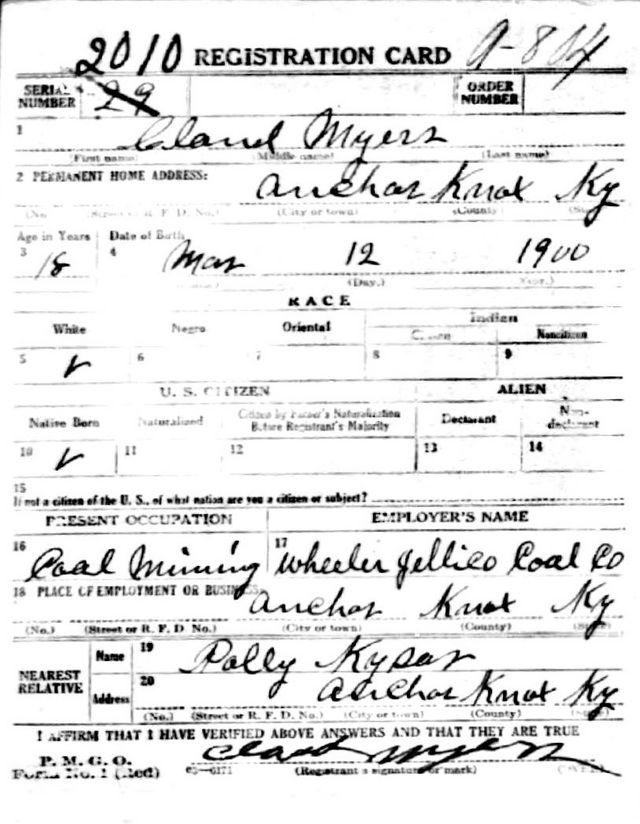 2010 REGISTRATION CARD A-804
SERIAL NUMBER 29 ORDER NUMBER
1 Claud Myers
(First name) (Middle name) (Last name)
2 PERMANENT HOME ADDRESS: Anchor Knox Ky
(No.) (Street or R. F. D. No.) (City or town) (County) (State)
Age in Years Date of Birth
3 18 4 Mar 12 1900
(Day.) (Year.)
RACE
White Negro Oriental Indian
Citizen Noncitizen
5 ✓ 6 7 8 9
U. S. CITIZEN ALIEN
Native Born Naturalized Citizen by Father's Naturalization Before Registrant's Majority Declarant Non-declarant
10 ✓ 11 12 13 14
15
If not a citizen of the U. S., of what nation are you a citizen or subject?
PRESENT OCCUPATION EMPLOYER'S NAME
16 Coal Mining 17 Wheeler Jellico Coal Co
18 PLACE OF EMPLOYMENT OR BUSINESS: Anchor Knox Ky
(No.) (Street or R. F. D. No.) (City or town) (County) (State)
NEAREST RELATIVE Name 19 Polly
Address 20 Anchor Knox Ky
(No.) (Street or R. F. D. No.) (City or town) (County) (State)
I AFFIRM THAT I HAVE VERIFIED ABOVE ANSWERS AND THAT THEY ARE TRUE
P. M. G. O.
Form No. 1 (Red) 03—6171 Claud Myers
(Registrant's signature or mark) (OVER)